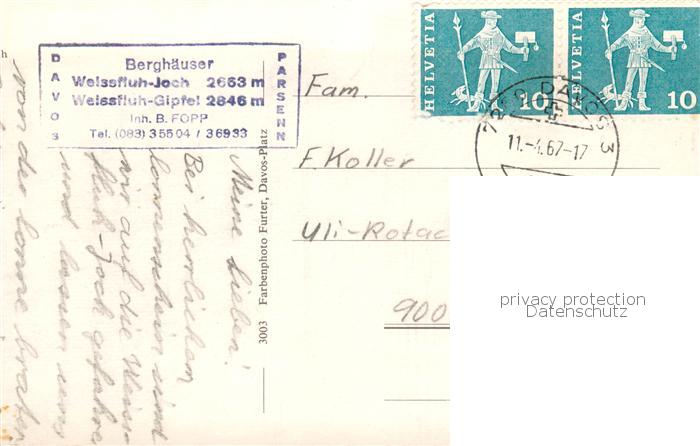 DAVOS
Berghäuser
Weissfluh-Joch 2663 m
Weissfluh-Gipfel 2846 m
Inh. B. FOPP
Tel. (083) 3 55 04 / 3 69 33
PARSENN
HELVETIA 10
HELVETIA 10
DAVOS 3
11.-4.67-17
Fam.
F. Koller
Uli-Rotac
900
privacy protection
Datenschutz
3003 Farbenphoto Furter, Davos-Platz
Meine Lieben!
Bei herrlichem
Sonnenschein sind
wir auf die Weiss
fluh-Joch gefahre
und lassen uns
von der Sonne braten